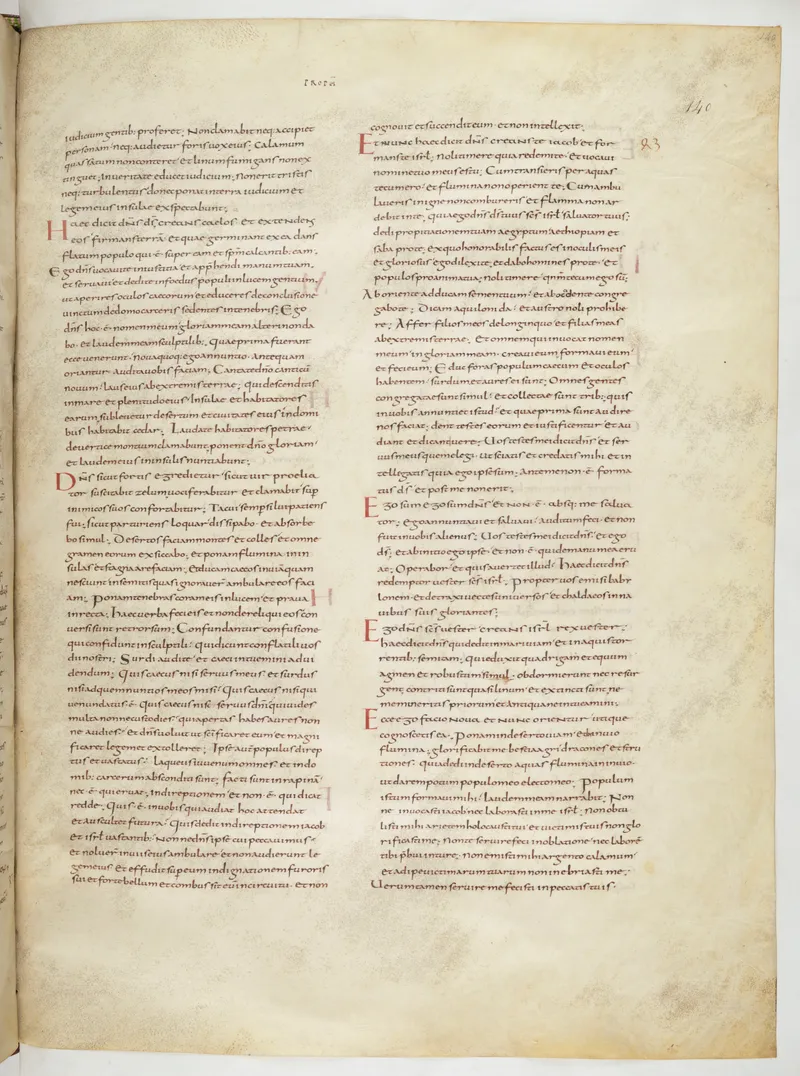 PROPH
140
iudicium gentib; proferet; Non clamabit neq; accipiet
personam neq; audietur foris uox eius; Calamum
quassatum non conteret et linum fumigans non ex
tinguet; In ueritate educet iudicium; Non erit tristis
neq; turbulentus donec ponat in terra iudicium et
legem eius insulae exspectabunt;
Haec dicit dns ds creans caelos et extendens
eos firmans terra et quae germinant ex ea dans
flatum populo qui ē super eam et spm calcantib; eam.
Ego dns uocaui te in iustitia et apphendi manum tuam.
et seruaui et dedi te in foedus populi in lucem gentium.
ut aperires oculos caecorum et educeres de conclusione
uinctum de domo carceris sedentes in tenebris; Ego
dns hoc ē nomen meum gloriam meam alteri non da
bo. et laudem meam sculptilib; Quae prima fuerant
ecce uenerunt. noua quoq; ego annuntio. Antequam
oriantur. Audita uobis faciam; Cantate dno canticū
nouum laus eius ab extremis terrae; qui descenditis
in mare et plenitudo eius Insulae et habitatores
earum. subleuetur desertum et ciuitates eius in domi
bus habitabit cedar; Laudate habitatores petrae
de uertice montium clamabunt; ponent dno gloriam
et laudem eius in insulis nuntiabunt;
Dns sicut fortis egredietur sicut uir proelia
tor suscitabit zelum uociferabitur et clamabit sup
inimicos suos confortabitur; Tacui semp silui patiens
fui; sicut parturiens loquar dissipabo et absorbe
bo simul; Desertos faciam montes et colles et omne
gramen eorum exsiccabo; et ponam flumina in in
sulas et stagna arefaciam; Et ducam caecos in uiā quam
nesciunt in semitis quas ignorauer ambulare eos faci
am; Ponam tenebras coram eis in lucem et praua
in recta; Haec uerba feci eis et non dereliqui eos con
uersi sunt retrorsum; Confundantur confusione
qui confidunt in sculptili quidicunt conflatili uos
dii nostri; Surdi audite et caeci intuemini ad ui
dendum; Quis caecus nisi seruus meus et surdus
nisi ad quem nuntios meos misi Quis caecus nisi qui
uenundatus ē Quis caecus nisi seruus dni qui uides
multa nonne custodies qui apertas habes aures non
ne audies Et dns uoluit ut scificaret eum et magni
ficaret legem et extolleret; Ipse autē populus direp
tus et uastatus Laqueus iuuenum omnes et in do
mib; carcerum absconditi sunt; facti sunt in rapinā
nec ē qui eruat; In direptionem et non ē qui dicat
redde; Quis ē in uobis qui audiat hoc attendat
et auscultet futura Quis dedit in direptionem iacob
et isrl uastantib; Non ne dns ipse cui peccauimus
et noluer in uiis eius ambulare et non audierunt le
gem eius et effudit sup eum indignationem furoris
sui et forte bellum et combussit eū in circuitu. et non
cognouit et succendit eum et non intellexit;
Et nunc haec dicit dns creans te iacob et for
mans te isrl. Noli timere quia redemi te et uocaui
nomine tuo meus es tu; Cum transieris per aquas
tecum ero et flumina non operient te; Cum ambu
laueris in igne non combureris et flamma non ar
debit in te. quia ego dns ds tuus scs isrl saluator tuus;
dedi propitiationem tuam aegyptum aethiopiam et
saba pro te. ex quo honorabilis factus es in oculis meis
et gloriosus ego dilexi te. et dabo homines pro te et
populos pro anima tua; noli timere qnm tecum ego sū;
Ab oriente adducam semen tuum et ab occidente congre
gabo te; Dicam aquiloni da et austro noli prohibe
re; Affer filios meos de longinquo et filias meas
ab extremis terrae. Et omnem qui inuocat nomen
meum in gloriam meam. creaui eum formaui eum
et feci eum; Educ foras populum caecum et oculos
habentem surdum et aures ei sunt; Omnes gentes
congregatae sunt simul et collectae sunt tribus; quis
in uobis annuntiet istud et quae prima sunt audire
nos faciat; dent testes eorum et iustificentur et au
diant et dicant uere; Uos testes mei dicit dns et ser
uus meus quem elegi. ut sciatis et credatis mihi et in
tellegatis quia ego ipse sum; Ante me non ē forma
tus ds et post me non erit;
Ego sum ego sum dns et non ē absq; me salua
tor; Ego annuntiaui et saluaui auditum feci et non
fuit in uobis alienus; Uos testes mei dicit dns et ego
ds; Et ab initio ego ipse et non ē qui de manu mea eru
at; Operabor et quis auertet illud Haec dicit dns
redemptor uester scs isrl; Propter uos emisi baby
lonem et detraxi uectes uniuersos et chaldaeos in na
uibus suis gloriantes;
Ego dns scs uester creans isrl rex uester;
haec dicit dns qui dedit in mari uiam et in aquis tor
rentib; semitam; qui eduxit quadrigam et equum
agmen et robustum simul obdormierunt nec resur
gent contriti sunt quasi linum et extincti sunt ne
memineritis priorum et antiqua ne intueamini;
Ecce ego facio noua et nunc orientur utique
cognoscetis ea. Ponam in deserto uiam et in inuio
flumina. glorificabit me bestia agri dracones et stru
tiones. quia dedi in deserto aquas flumina in inuio
ut darem potum populo meo electo meo; Populum
istum formaui mihi laudem meam narrabit; Non
me inuocasti iacob nec laborasti in me isrl. non obtu
listi mihi arietem holocausti tui et uictimis tuis non glo
rificasti me; Non te seruire feci in oblatione nec laborē
tibi pbui in ture; Non emisti mihi argento calamum
et adipe uictimarum tuarum non inebriasti me;
Uerum tamen seruire me fecisti in peccatis tuis